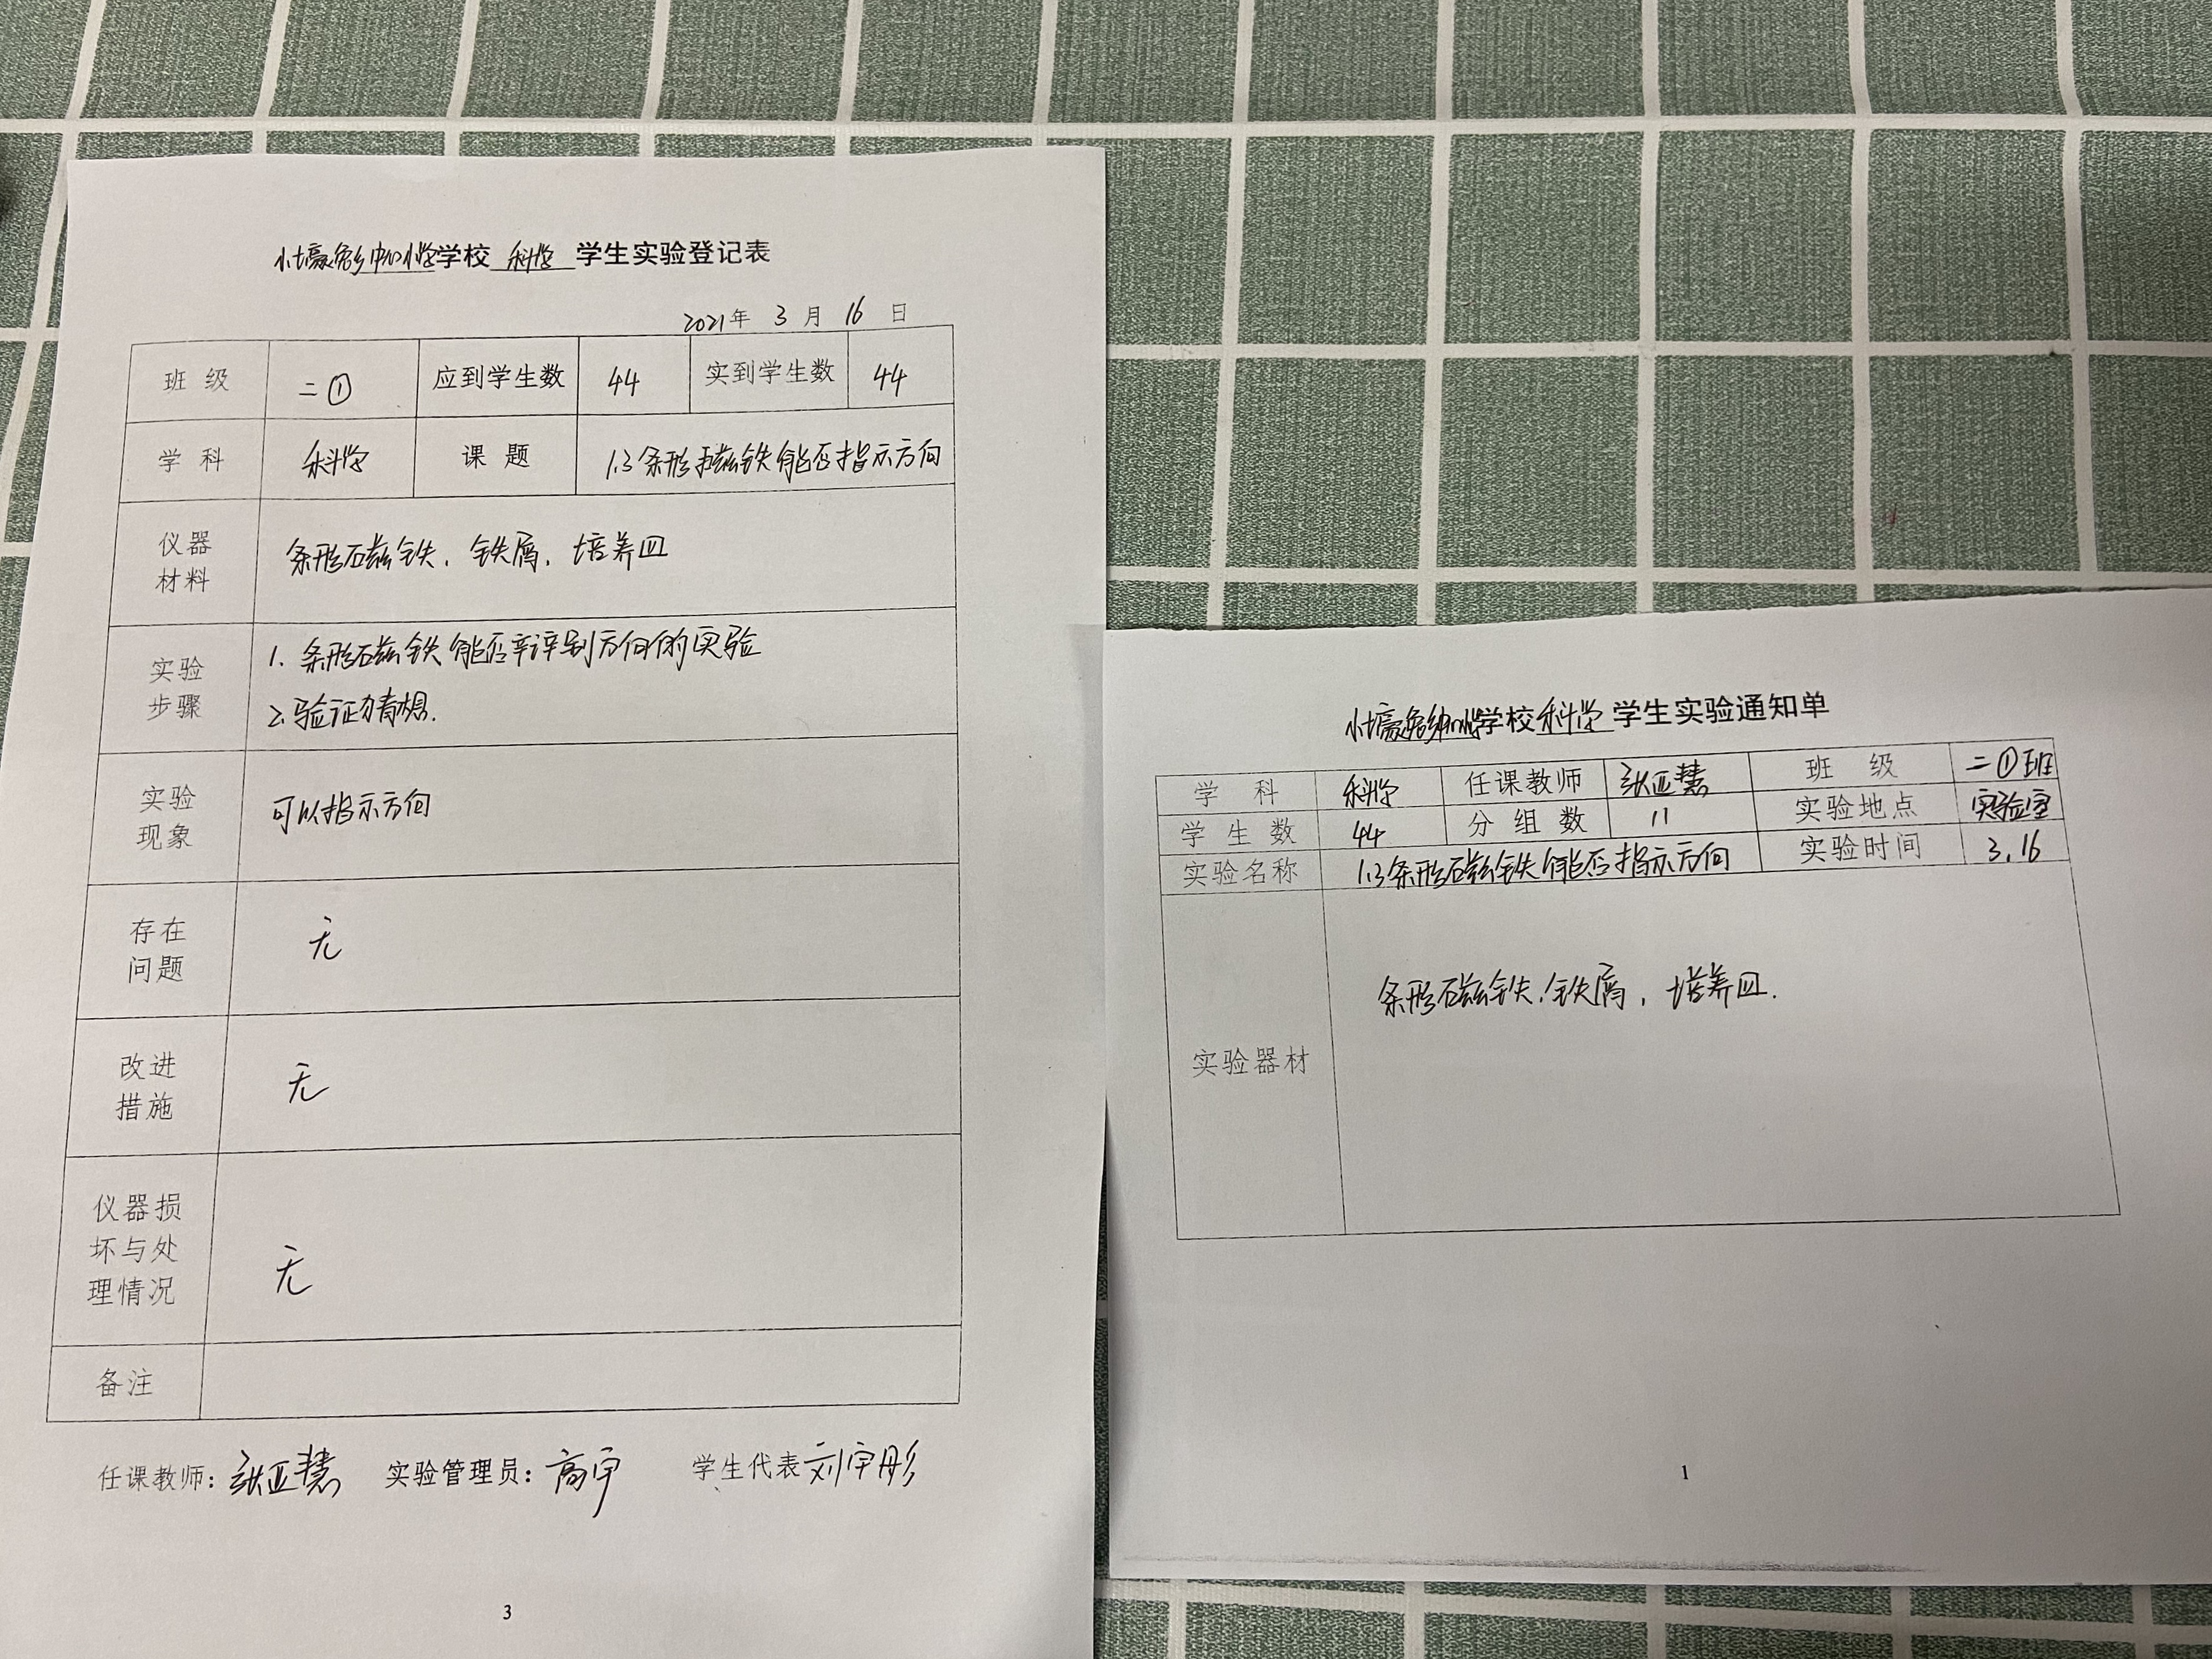 小壕兔乡中心小学学校 科学 学生实验登记表
2021年 3 月 16 日
班 级 二① 应到学生数 44 实到学生数 44
学 科 科学 课 题 1.3条形磁铁能否指示方向
仪器
材料
条形磁铁、铁屑、培养皿
实验
步骤
1. 条形磁铁能否辨别方向的实验
2. 验证猜想.
实验
现象
可以指示方向
存在
问题
无
改进
措施
无
仪器损
坏与处
理情况
无
备注
任课教师：张亚慧 实验管理员：高宇 学生代表 刘宇彤
3
小壕兔乡中心小学学校科学学生实验通知单
学 科 科学 任课教师 张亚慧 班 级 二①班
学 生 数 44 分 组 数 11 实验地点 实验室
实验名称 1.3条形磁铁能否指示方向 实验时间 3.16
实验器材
条形磁铁、铁屑, 培养皿.
1